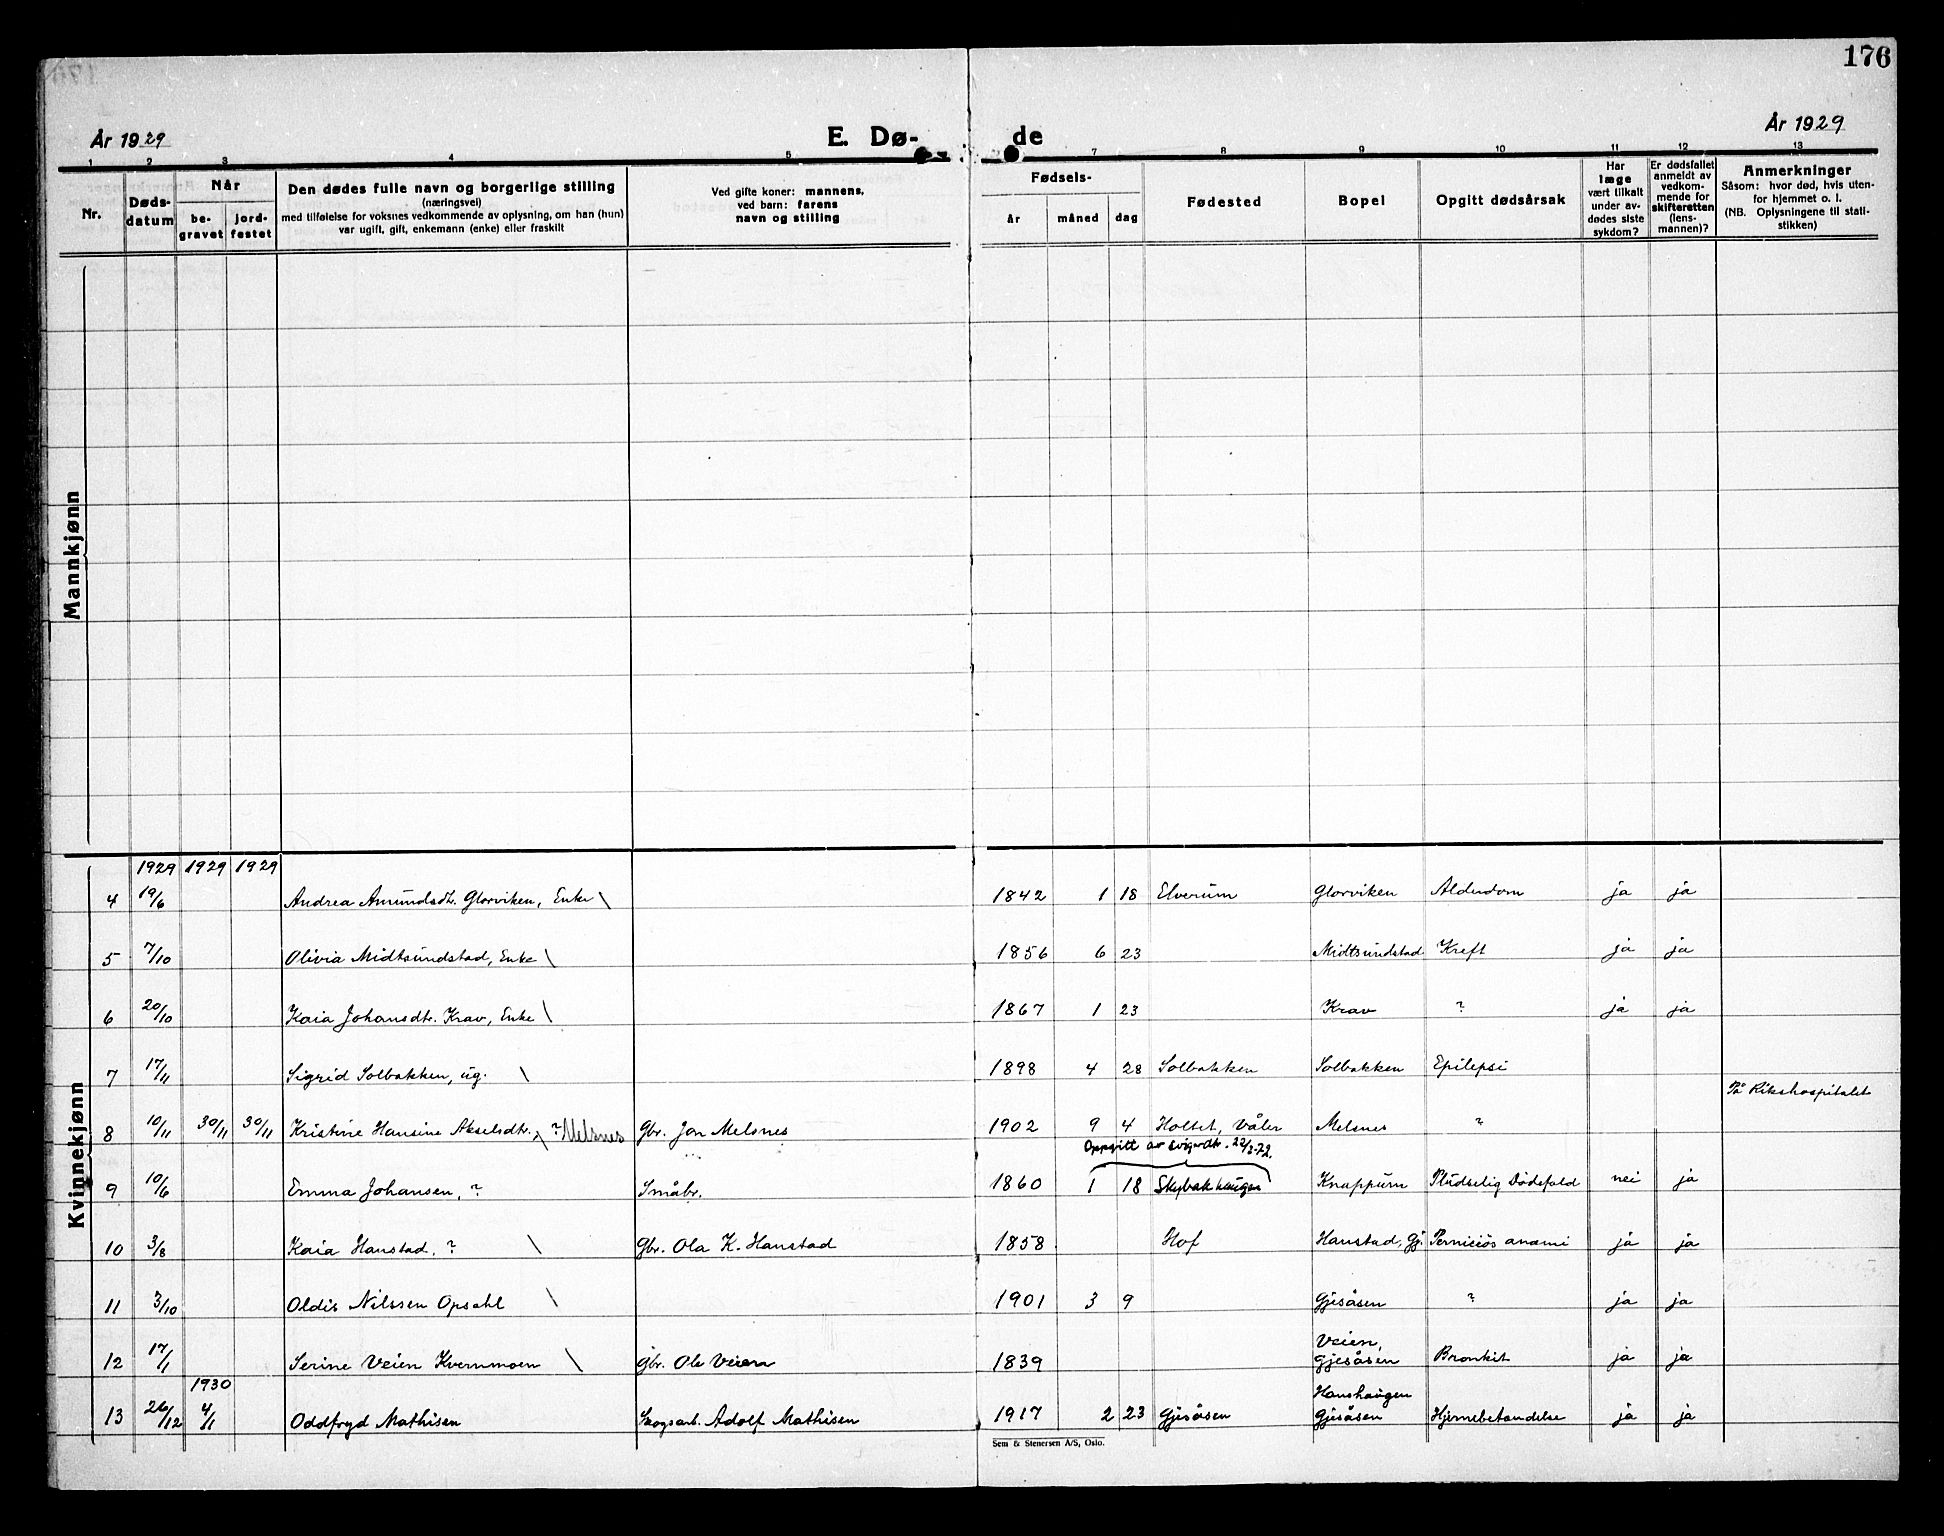 176
År 1929
E. Dø-
de
År 1929
1 2 3 4 5 7 8 9 10 11 12 13
Nr.
Døds-
datum
Når
be-
gravet
jord-
festet
Den dødes fulle navn og borgerlige stilling
(næringsvei)
med tilføielse for voksnes vedkommende av oplysning, om han (hun)
var ugift, gift, enkemann (enke) eller fraskilt
Ved gifte koner: mannens,
ved barn: farens
navn og stilling
Fødsels-
år
måned
dag
Fødested
Bopel
Opgitt dødsårsak
Har
læge
vært tilkalt
under av-
dødes siste
sykdom?
Er dødsfallet
anmeldt av
vedkom-
mende for
skifteretten
(lens-
mannen)?
Anmerkninger
Såsom: hvor død, hvis uten-
for hjemmet o. l.
(NB. Oplysningene til stati-
stikken)
Mannkjønn
Kvinnekjønn
1929 1929 1929
4 19/6 Andrea Amundsdt. Glorviken, Enke \ 1842 1 18 Elverum Glorviken Alderdom ja ja
5 7/10 Olivia Midtsundstad, Enke \ 1856 6 23 Midtsundstad Kreft ja ja
6 20/10 Kaia Johansdtr. Krav, Enke \ 1867 1 23 Krav ? ja ja
7 17/11 Sigrid Solbakken, ug. \ 1898 4 28 Solbakken Solbakken Epilepsi
På Rikshospitalet
8 10/11 30/11 30/11 Kristine Hansine Akselsdtr. \ ? Melsnes Gbr. Jon Melsnes 1902 9 4 Holtet, Våler Melsnes "
Oppgitt av svigerdtr. 22/3-72.
9 10/6 Emma Johansen, ? Småbr. 1860 1 18 Skybakhaugen Knappum Pludselig Dødsfald nei ja
10 3/8 Kaia Hanstad, ? \ Gbr. Ola K. Hanstad 1858 Hof Hanstad, Gj. Perniciøs anæmi ja ja
11 3/10 Oldis Nilssen Opsahl \ 1901 3 9 Gjesåsen ? ja ja
12 17/1 Serine Veien Kvernmoen \ Gbr. Ole Veien 1839 Veien,
Gjesåsen Bronkit ja ja
1930
13 26/12 4/1 Oddfryd Mathisen Skogsarb. Adolf Mathisen 1917 2 23 Gjesåsen Hanshaugen
Gjesåsen Hjernebetendelse ja ja
Sem & Stenersen A/S, Oslo.